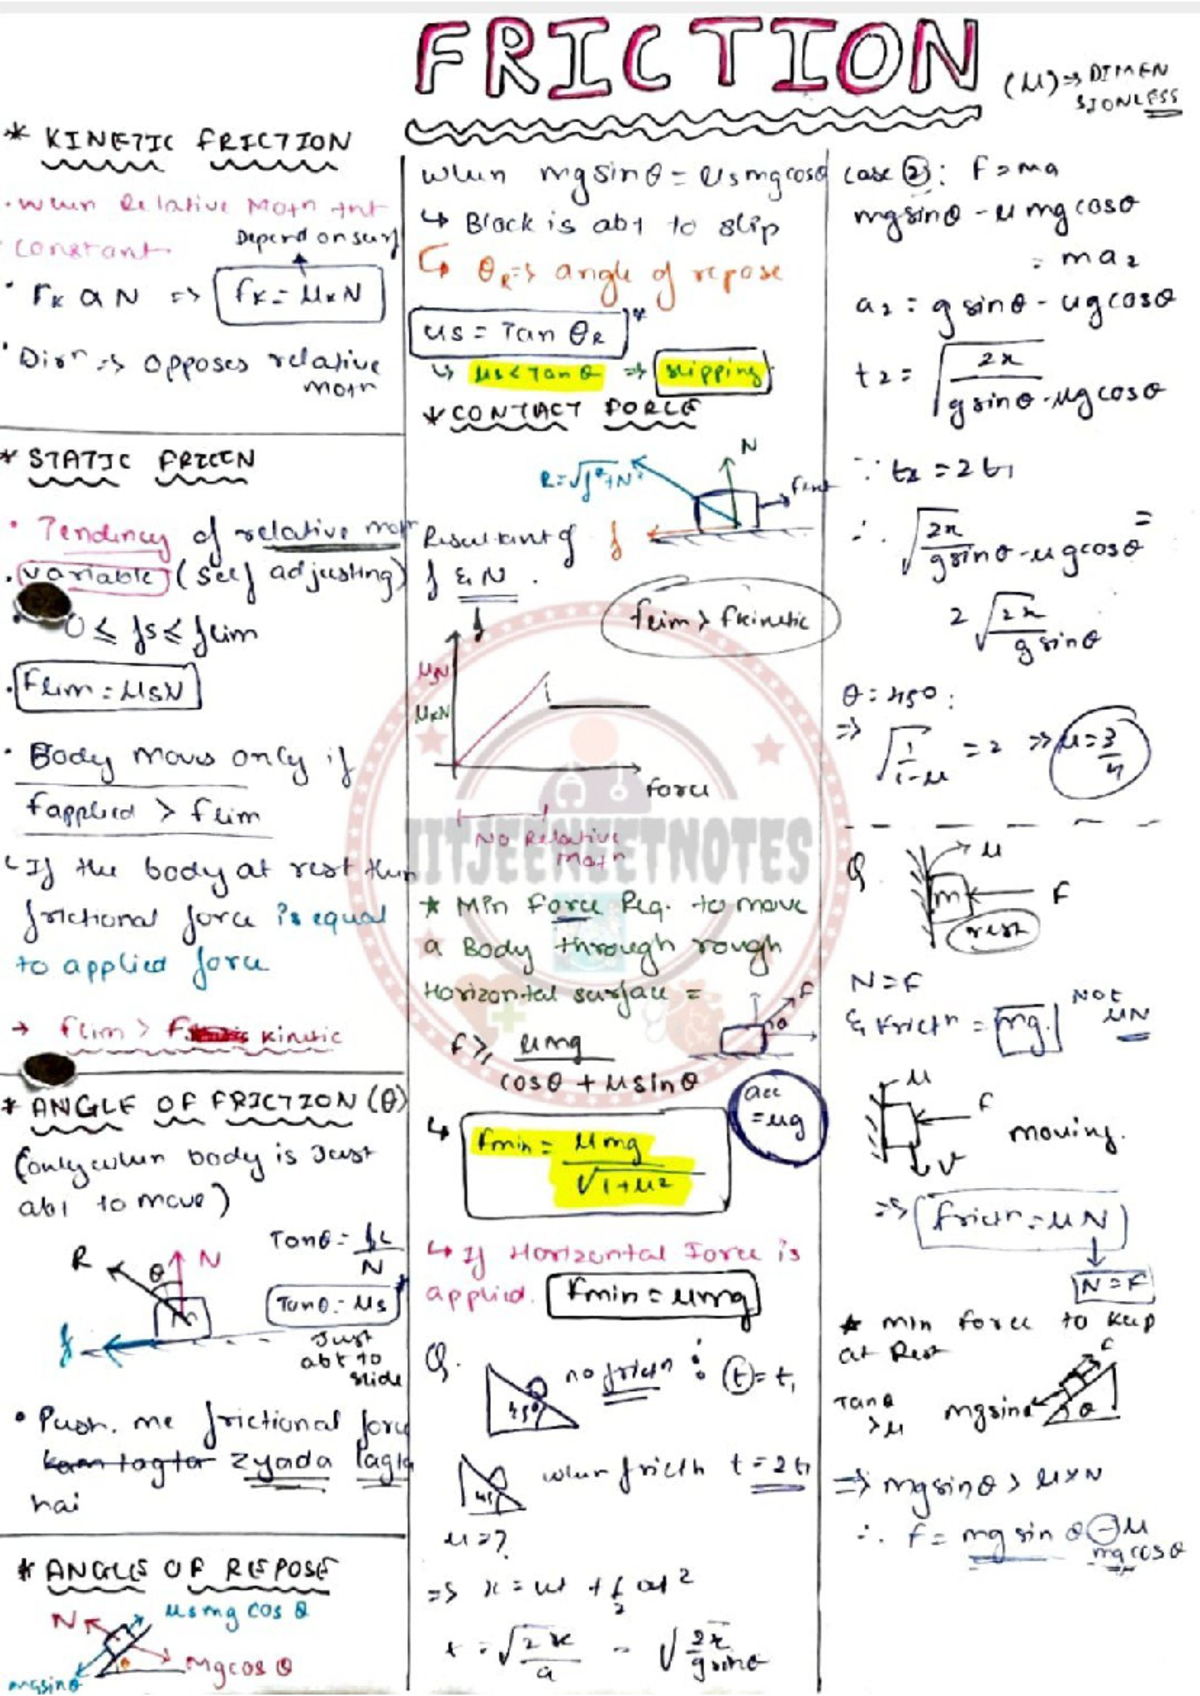 FRICTION
(μ) => DIMEN
SIONLESS
* KINETIC FRICTION
• When Relative Motn
constant.
Depend on surf
• fK α N => fK = μKN
• Dirn => opposes relative
motn
* STATIC
• Tendency of relative motn
• Variable (Self adjusting)
0 ≤ fs ≤ flim
• Flim = μsN
• Body moves only if
fapplied > flim
↳ If the body at rest then
frictional force is equal
to applied force
→ flim > F kinetic
* ANGLE OF FRICTION (θ)
(only when body is Just
abt to move)
R
θ
N
f
Tanθ = fL/N
Tanθ = μs
Just
abt to
slide
• Push me frictional force
kam lagta Zyada lagta
hai
* ANGLES OF REPOSE
N
μsmg cos θ
mgsinθ
θ
Mgcos θ
when mgsinθ = μsmgcosθ
↳ Block is abt to slip
↳ θR => angle of repose
μs = Tan θR
↳ μs < Tan θ => slipping
* CONTACT FORCE
N
R = √f²+N²
fext
f
Resultant of
f & N.
flim > fkinetic
f
μsN
μkN
force
No Relative
Motn
IITJEENEETNOTES
* Min Force Req. to move
a Body through rough
Horizontal surface =
F
θ
F ≥ μmg / cosθ + μsinθ
acc
= μg
↳ Fmin = μmg / √1+μ²
↳ If Horizontal Force is
applied. Fmin = μmg
Q. 45° no frictn : t = t1
45 when frictn t = 2t1
μ = ?
=> x = ut + 1/2 at²
t = √2x/a = √2x/gsinθ
case ②: F = ma
mgsinθ - μmgcosθ
= ma2
a2 = gsinθ - μgcosθ
t2 = √2x / gsinθ - μgcosθ
∵ t2 = 2t1
∴ √2x / gsinθ - μgcosθ =
2√2x / gsinθ
θ = 45°:
=> √1/1-μ = 2 => μ = 3/4
Q. μ
m F
rest
N = F
& Frictn = mg. Not
μN
μ
F
moving.
v
=> frictn = μN
N = F
* Min force to keep
at Rest
F
Tanθ
> μ
mgsinθ
θ
=> mgsinθ > μ×N
∴ F = mg sin θ - μ
mg cosθ